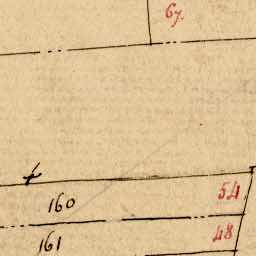 67.
54
160
48
161